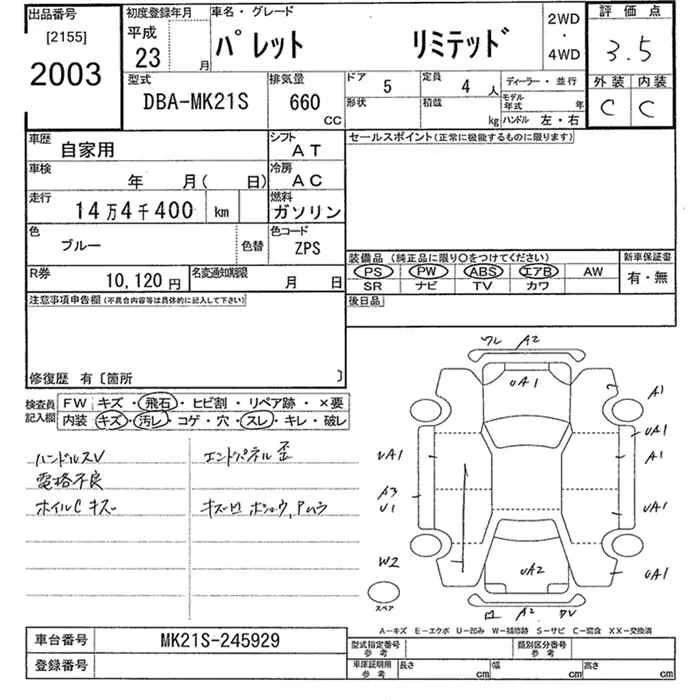 出品番号 初度登録年月 車名・グレード 2WD 評価点
[2155] 平成 パレット リミテッド ・ 3.5
2003 23 月 4WD 外装 内装
型式 排気量 ドア 5 定員 4 人 ディーラー・並行 C C
DBA-MK21S 660 CC 形状 積載 kg モデル年式 年
ハンドル 左・右
車歴 自家用 シフト AT セールスポイント(正常に機能するものに限ります)
車検 年 月( 日) 冷房 AC
走行 14万4千400 km 燃料 ガソリン
色 ブルー 色替 色コード ZPS
装備品 (純正品に限り○をつけてください) 新車保証書
PS PW ABS エアB AW 有・無
SR ナビ TV カワ
R券 10,120円 名変通知期限 月 日 後日品
注意事項申告欄(不具合内容等は具体的に記入して下さい)
修復歴 有〔箇所 〕
検査員 FW キズ・飛石・ヒビ割・リペア跡・×要
記入欄 内装 キズ・汚レ・コゲ・穴・スレ・キレ・破レ
ハンドルスレ エンドパネル歪
電格不良
ホイルC キズ
ワレ A2
UA1
A1
UA1
UA1 A1
A3
U1 UA1
W2 UA2 UA1
スペア A2
A-キズ E-エクボ U-凹み W-補修跡 S-サビ C-腐食 XX-交換済
車台番号 MK21S-245929 型式指定番号 参考 類別区分番号 参考
登録番号 車庫証明用 参考 長さ cm 幅 cm 高さ cm